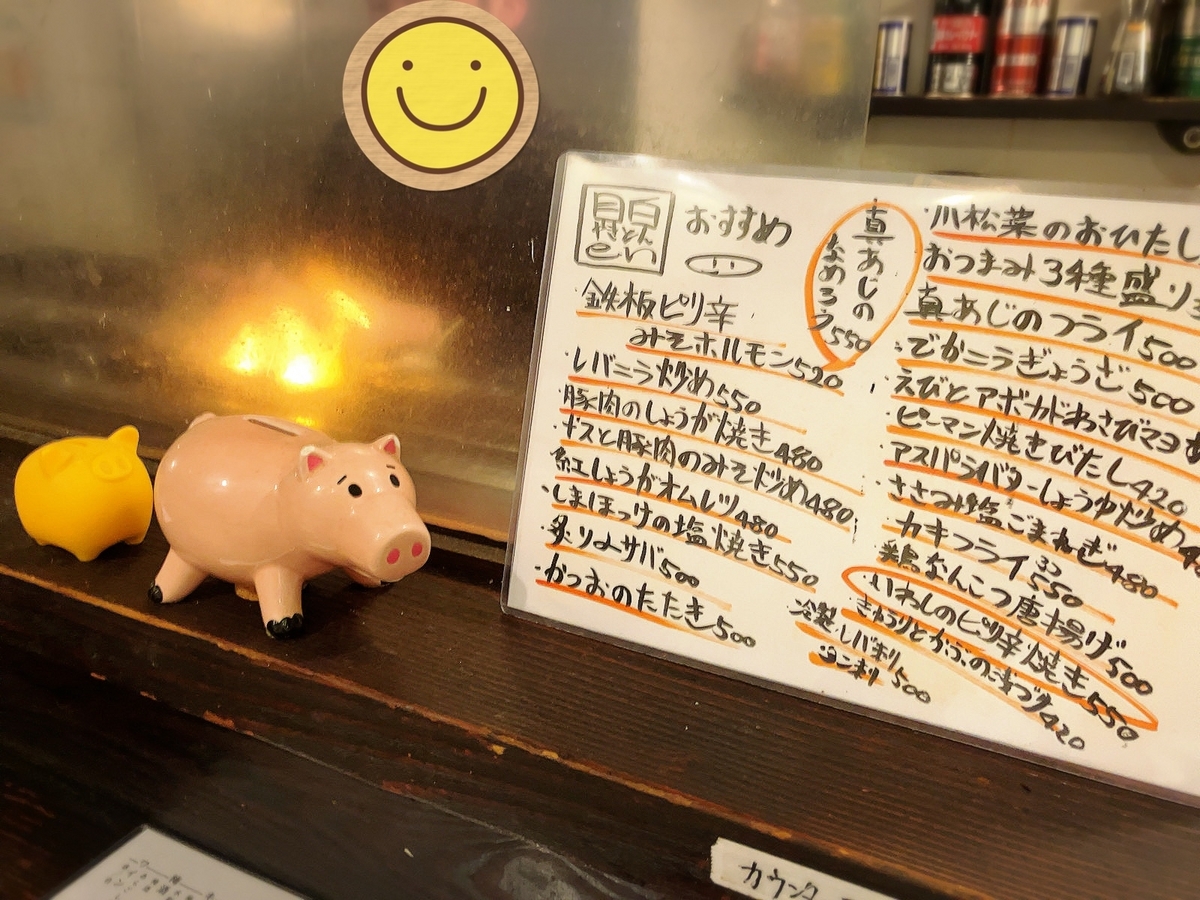 おすすめ
鉄板ピリ辛
みそホルモン520
・レバニラ炒め550
・豚肉のしょうが焼き480
・ナスと豚肉のみそ炒め480
紅しょうがオムレツ480
・しまほっけの塩焼き550
・炙り〆サバ500
・かつおのたたき500
真あじの
なめろう550
・小松菜のおひたし
おつまみ3種盛り
真あじのフライ500
・でかニラぎょうざ500
えびとアボカドわさびマヨ
・ピーマン焼きびたし420
・アスパラバターしょうゆ炒め
・ささみ塩ごまねぎ480
・カキフライ550
・鶏なんこつ唐揚げ500
・いわしのピリ辛焼き550
・きゅうりとかぶの 420
冷製・レバ刺し
・タン刺し500
カウンタ